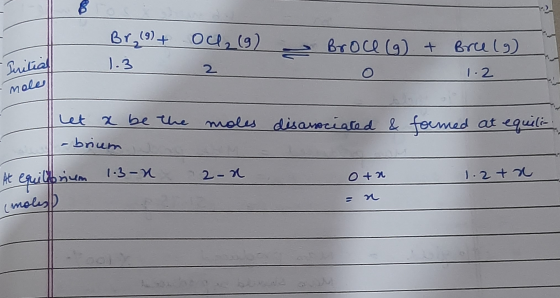 B
Br₂(g) + OCl₂(g) ⇌ BrOCl(g) + BrCl(g)
Initial moles 1.3 2 0 1.2
Let x be the moles disassociated & formed at equili-
-brium
At equilibrium (moles) 1.3-x 2-x 0+x 1.2+x
= x